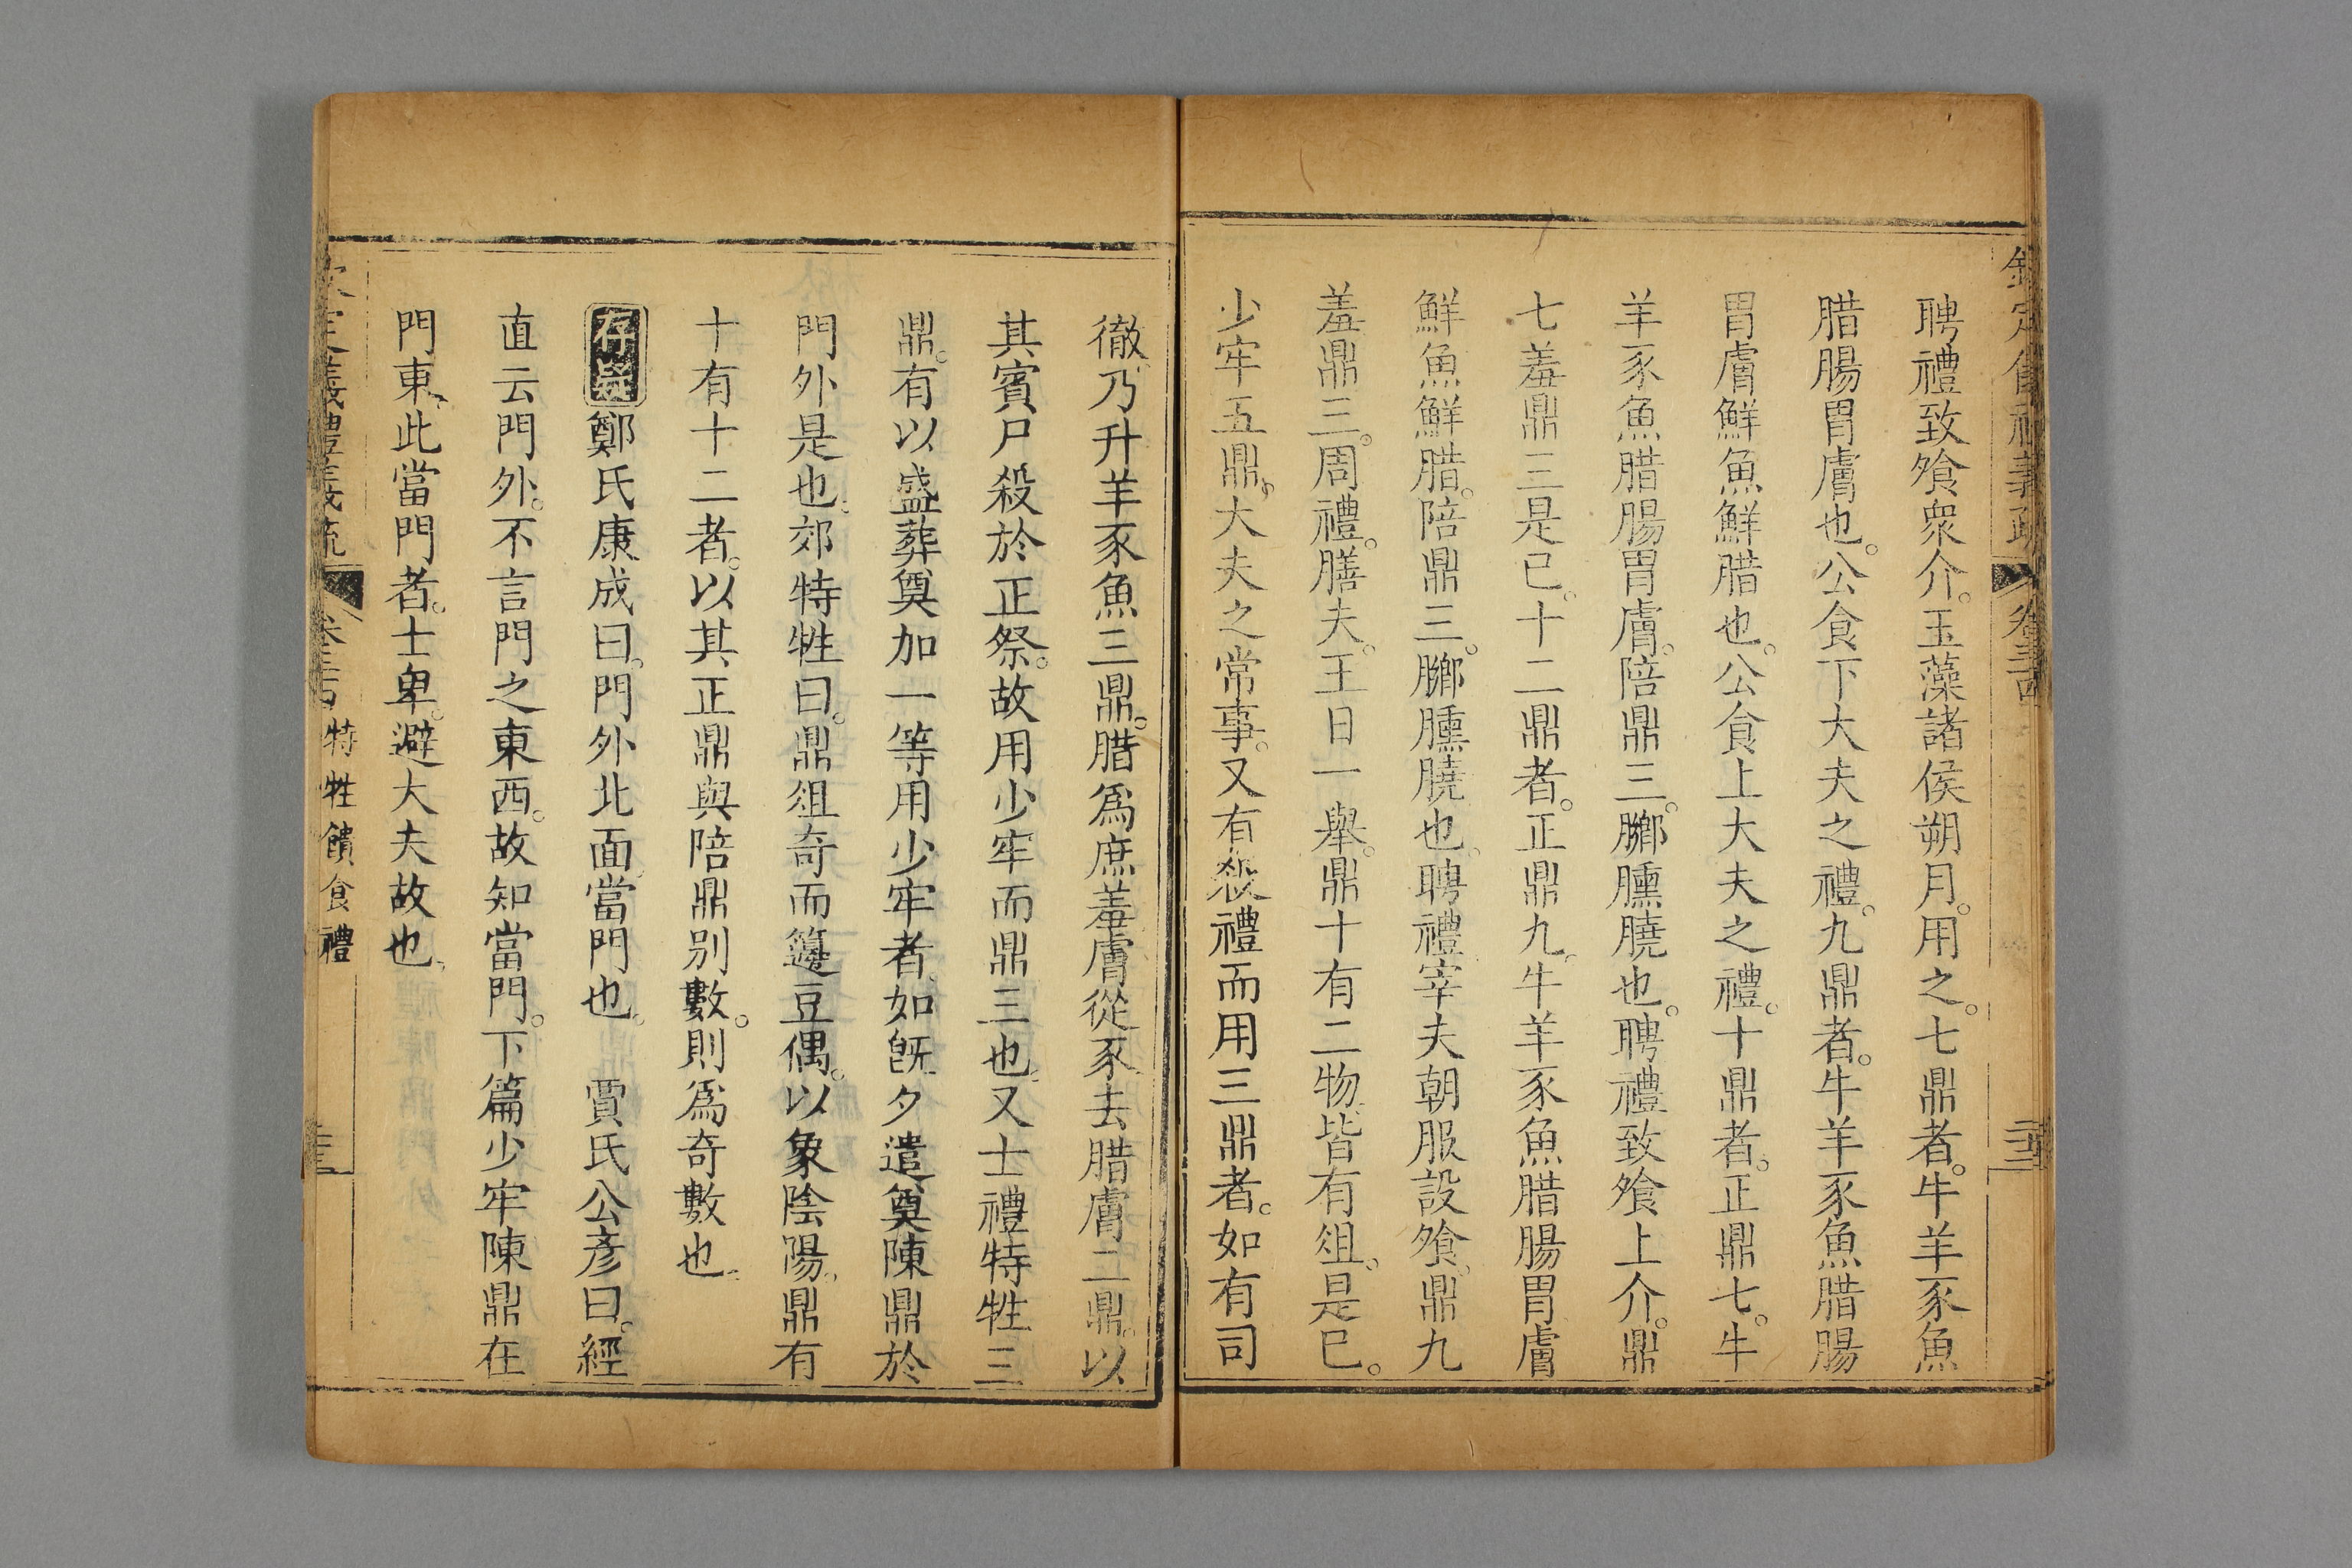 聘禮致飧衆介。玉藻諸侯朔月。用之。七鼎者。牛羊豕魚
腊腸胃膚也。公食下大夫之禮。九鼎者。牛羊豕魚腊腸
胃膚鮮魚鮮腊也。公食上大夫之禮。十鼎者。正鼎七。牛
羊豕魚腊腸胃膚。陪鼎三。膷臐膮也。聘禮致飧上介。鼎
七羞鼎三是已。十二鼎者。正鼎九。牛羊豕魚腊腸胃膚
鮮魚鮮腊。陪鼎三。膷臐膮也。聘禮宰夫朝服設飧。鼎九
羞鼎三。周禮。膳夫。王日一舉。鼎十有二物。皆有俎。是已。
少牢五鼎。大夫之常事。又有殺禮而用三鼎者。如有司
徹乃升羊豕魚三鼎。腊爲庶羞膚從豕去腊膚二鼎。以
其賓尸殺於正祭。故用少牢而鼎三也。又士禮特牲三
鼎。有以盛葬奠加一等用少牢者。如旣夕遣奠陳鼎於
門外是也。郊特牲曰。鼎俎奇而籩豆偶。以象陰陽。鼎有
十有十二者。以其正鼎與陪鼎别數。則爲奇數也。
存疑 鄭氏康成曰。門外北面。當門也。 賈氏公彥曰。經
直云門外。不言門之東西。故知當門。下篇少牢陳鼎在
門東、此當門者。士卑。避大夫故也。
特牲饋食禮